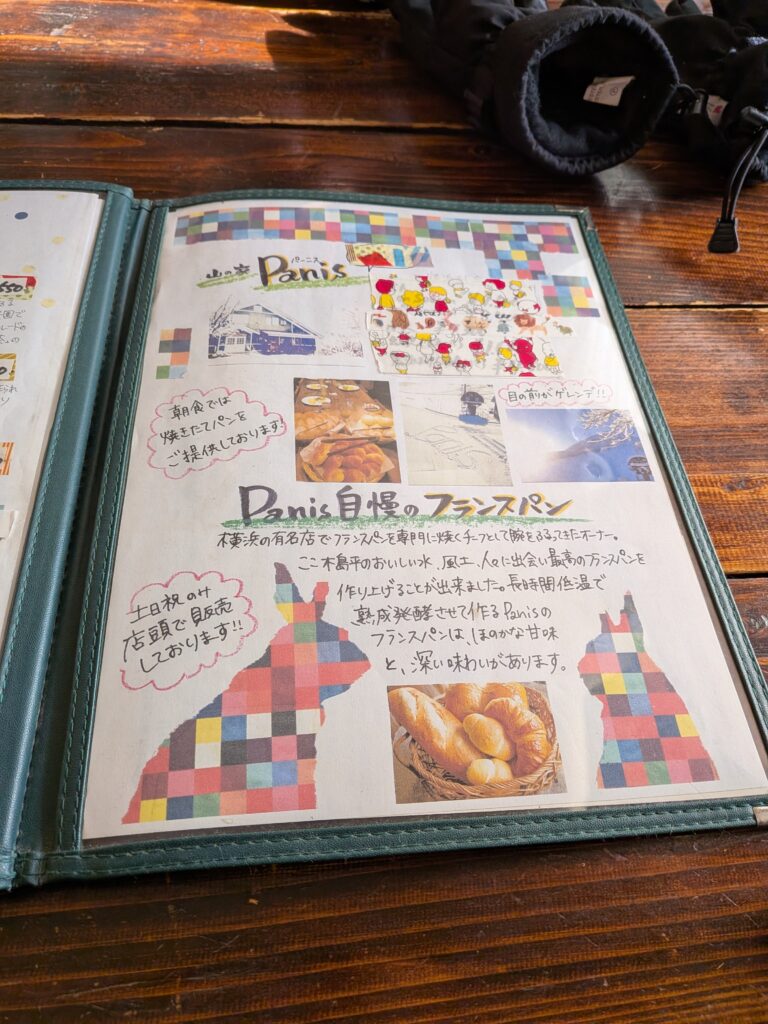 550
園で
レードの
山の家 Panis
パーニス
朝食では
焼きたてパンを
ご提供しております
目の前がゲレンデ!!
Panis自慢のフランスパン
横浜の有名店でフランスパンを専門に焼くチーフとして腕をふるってきたオーナー。
ここ木島平のおいしい水、風土、人々に出会い最高のフランスパンを
作り上げることが出来ました。長時間低温で
熟成発酵させて作るPanisの
フランスパンは、ほのかな甘味
と、深い味わいがあります。
土日祝のみ
店頭で販売
しております!!